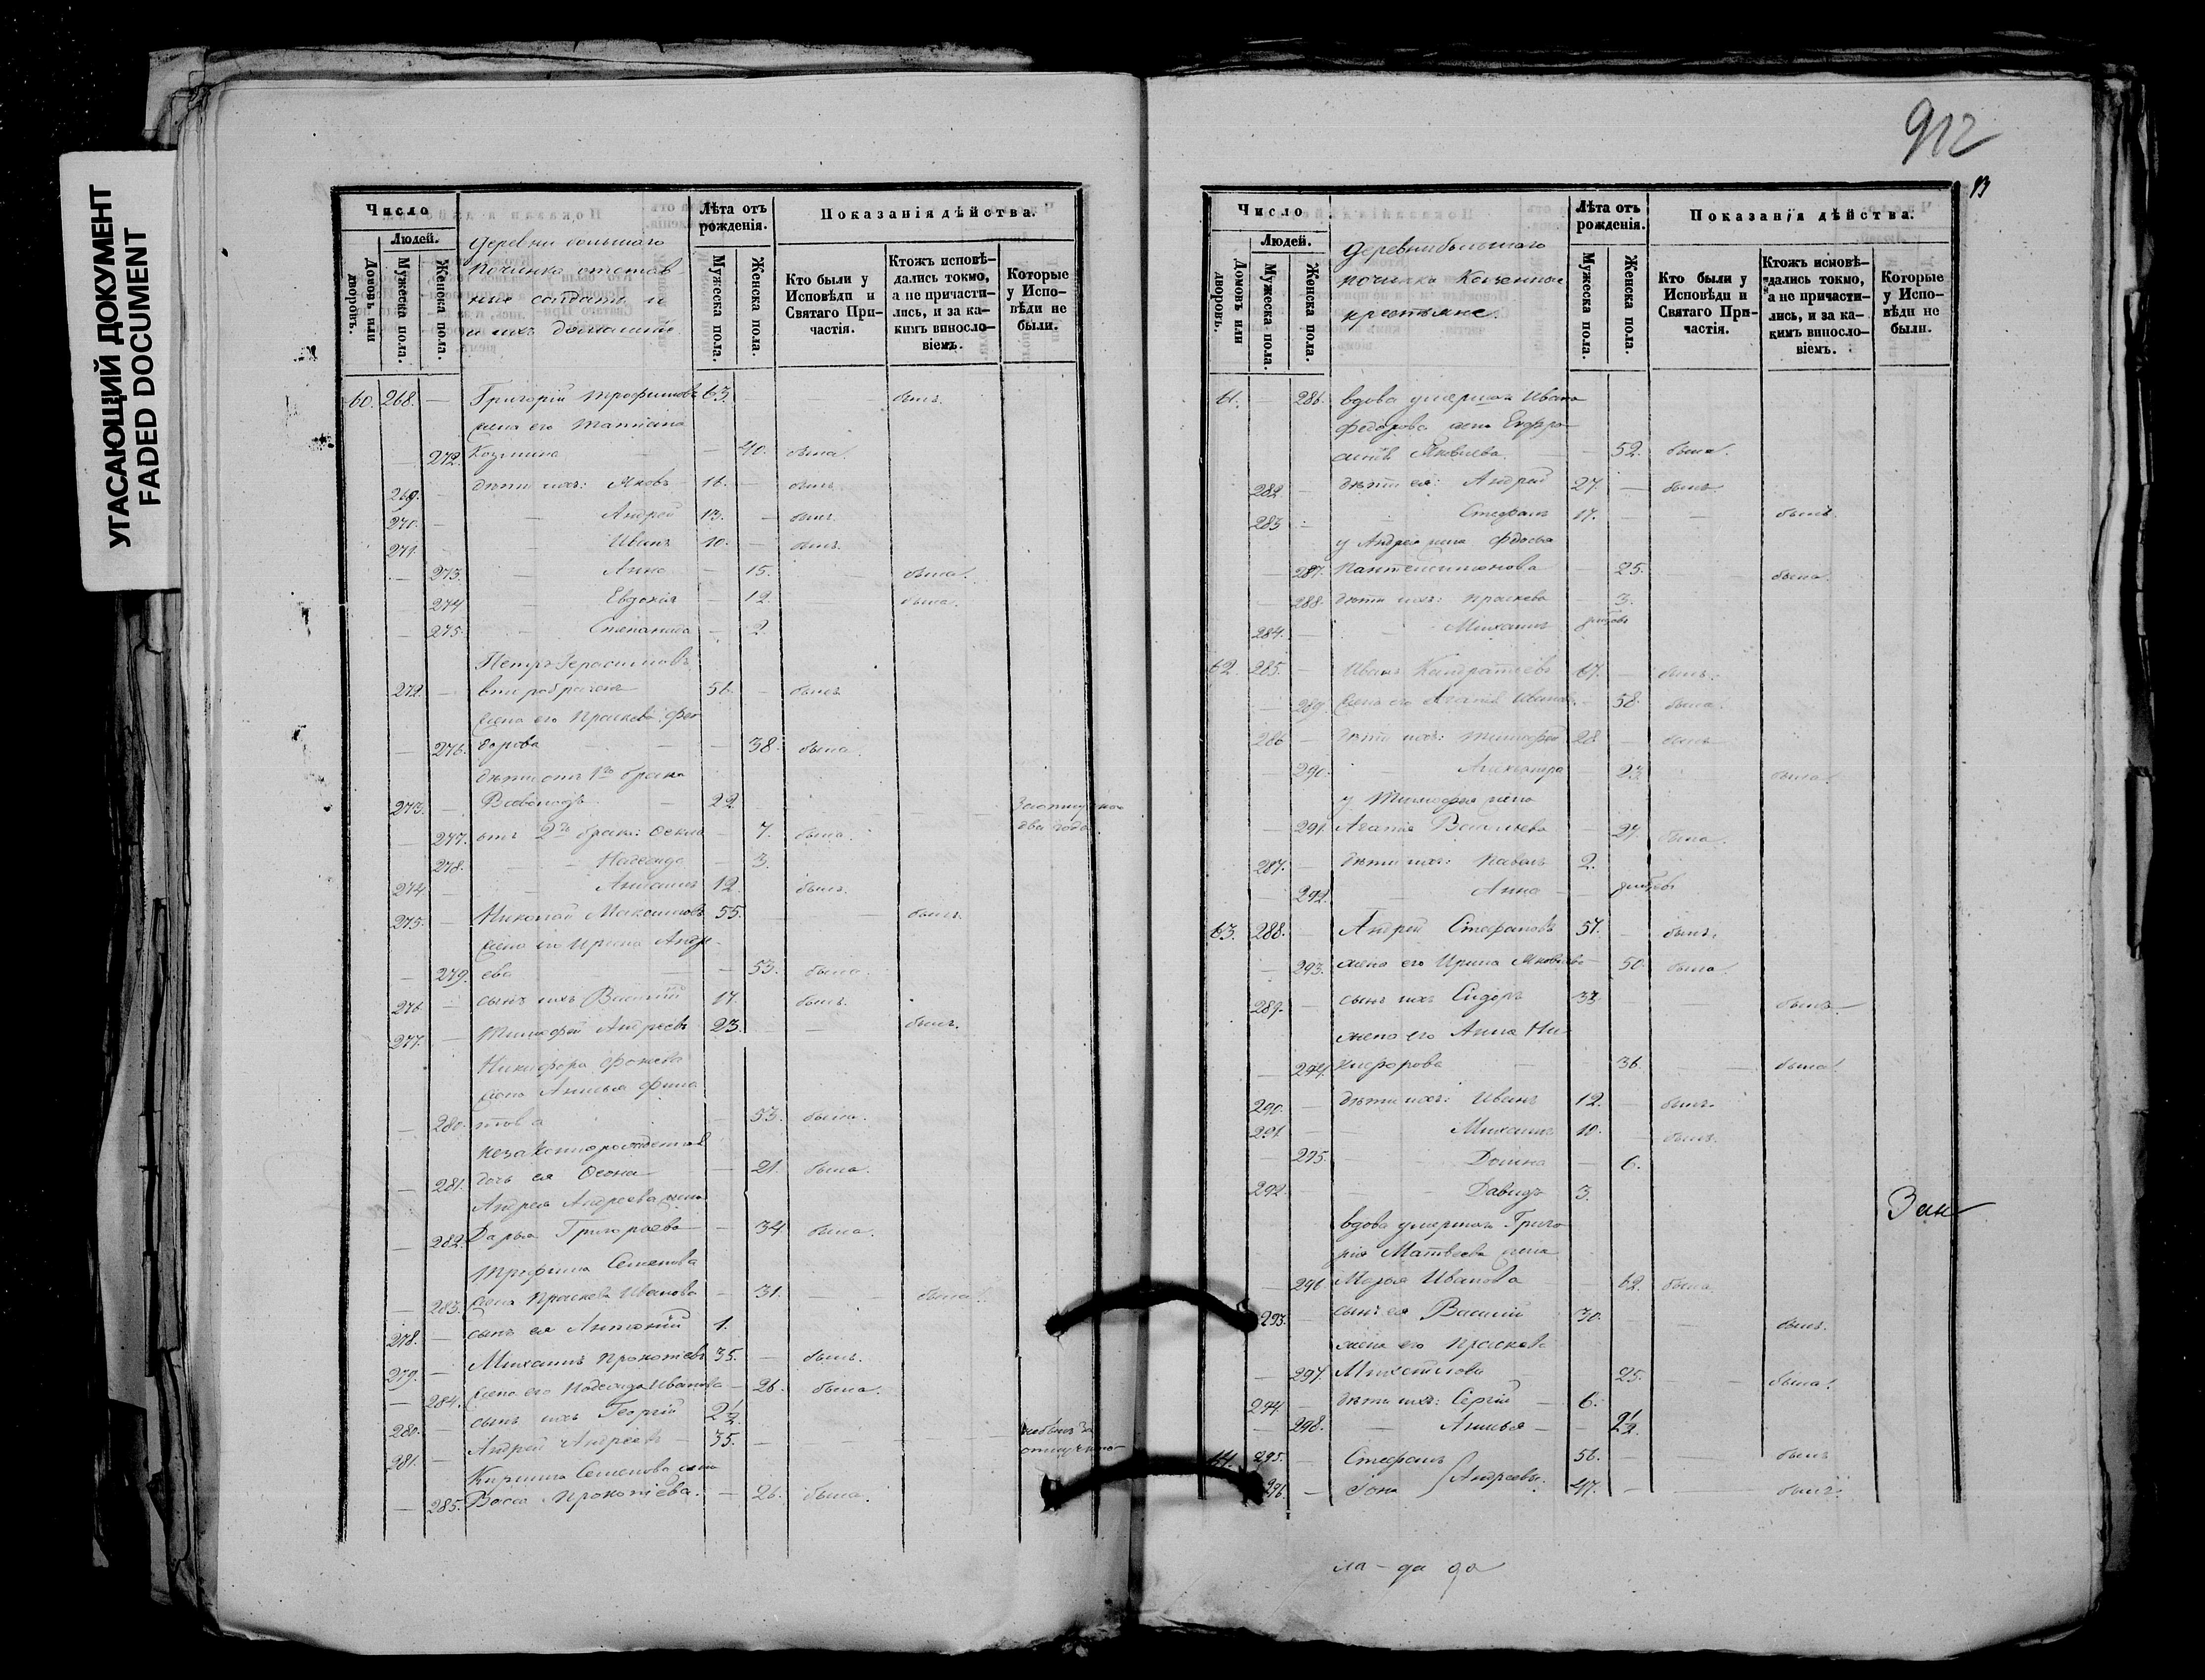 УГАСАЮЩИЙ ДОКУМЕНТ
FADED DOCUMENT
Число
Людей.
Домовъ или дворовъ.
Мужеска пола.
Женска пола.
Деревни большаго
починка отстав-
ные солдаты и
и ихъ домашніе.
Лѣта отъ рожденія.
Мужеска пола.
Женска пола.
Показанія дѣйства.
Кто были у Исповѣди и Святаго Причастія.
Ктожъ исповѣ-
дались токмо,
а не причасти-
лись, и за ка-
кимъ винослo-
віемъ.
Которые
у Испо-
вѣди не
были.
60. 268. — Григорій Трофимовъ 63. — былъ.
жена его Татіана
— 272. Козмина — 40. была.
269. — дѣти ихъ: Яковъ 16. — былъ.
270. — Андрей 13. — былъ.
271. — Иванъ 10. — былъ.
— 273. — Анна — 15. — была.
274 — Евдокія — 12. была.
— 275. — Степанида — 2.
Петръ Герасимовъ
272. — 56. — былъ
жена его Праскева Фео
— 276. дорова — 38. была.
дѣти отъ 1го брака
273. — Всеволодъ — 22
— 277. отъ 2го брака: — 7. была. два года.
278. — Надежда — 3.
274 — 12. былъ.
275. — Николай Максимовъ 55. — былъ.
жена его Ирина Андре-
— 279. ева — 53. была.
276. — сынъ ихъ Василій 17. былъ.
277. — Тимофей Андреевъ 23. — былъ.
Никифора Фокіева
жена Анисья Фила
— 280. това — 53. была.
незаконнорожденная
— 281. дочь ея — 21. была.
Андрея Андреева жена
— 282. Дарья Григорьева — 34 была.
Трефила Семенова
— 283. жена Праскева Иванова — 31. — была.
278. — сынъ ея Антоній 1.
279. — Михаилъ Прокопіевъ 35. — былъ.
— 284. жена его Надежда Иванова — 26. была.
280. — сынъ ихъ Георгій 2½.
281. — Андрей Андреевъ — 35. —
Кирилла Семенова жена
— 285. Васса Прокопіева. — 26. была.
912
13
Число
Людей.
Домовъ или дворовъ.
Мужеска пола.
Женска пола.
Деревни большаго
починка Казенные
крестьяне.
Лѣта отъ рожденія.
Мужеска пола.
Женска пола.
Показанія дѣйства.
Кто были у Исповѣди и Святаго Причастія.
Ктожъ исповѣ-
дались токмо,
а не причасти-
лись, и за ка-
кимъ винослo-
віемъ.
Которые
у Испо-
вѣди не
были.
61. — 286. вдова умершаго Ивана
Федорова жена Евфро-
Яковлева. — 52. была.
282 — дѣти ея: Андрей 27. — былъ
283. — Стефанъ 17. — былъ
у Андрея жена Федосья
— 287. Пантелеимонова — 25. — была.
— 288. дѣти ихъ: Праскева — 3.
284. — Михаилъ
62. 285. — Иванъ Кондратіевъ 67. — былъ.
— 289. жена его Агапія Иванова — 58. была.
286 — дѣти ихъ: Тимофей 28 — былъ
290. — — 23 была.
у Тимофея жена
— 291. Агапія Васильева — 27. была.
287. — дѣти ихъ: Павелъ 2.
— 292. — Анна —
63. 288. — Андрей Стефановъ 57. — былъ.
— 293. жена его Ирина Яковлева 50. была.
289. — сынъ ихъ Сидоръ 33. — былъ
жена его Анна Ни-
— 294. кифорова — 36. — была.
290. — дѣти ихъ: Иванъ 12. — былъ.
291 — Михаилъ 10. — былъ.
— 295. — Домна — 6.
292. — Давидъ 3.
Зан
вдова умершаго Григо-
рія Матвеева жена
— 296. Марья Иванова — 62. была.
293. — сынъ ея Василій 30. — былъ.
жена его Праскева
— 297. Михайлова — 25. — была.
294. — дѣти ихъ: Сергій — 6.
— 298. — Анисья — 2½
295. — Стефанъ 56. — былъ
296. — Іона } Андреевы. 47. — былъ.